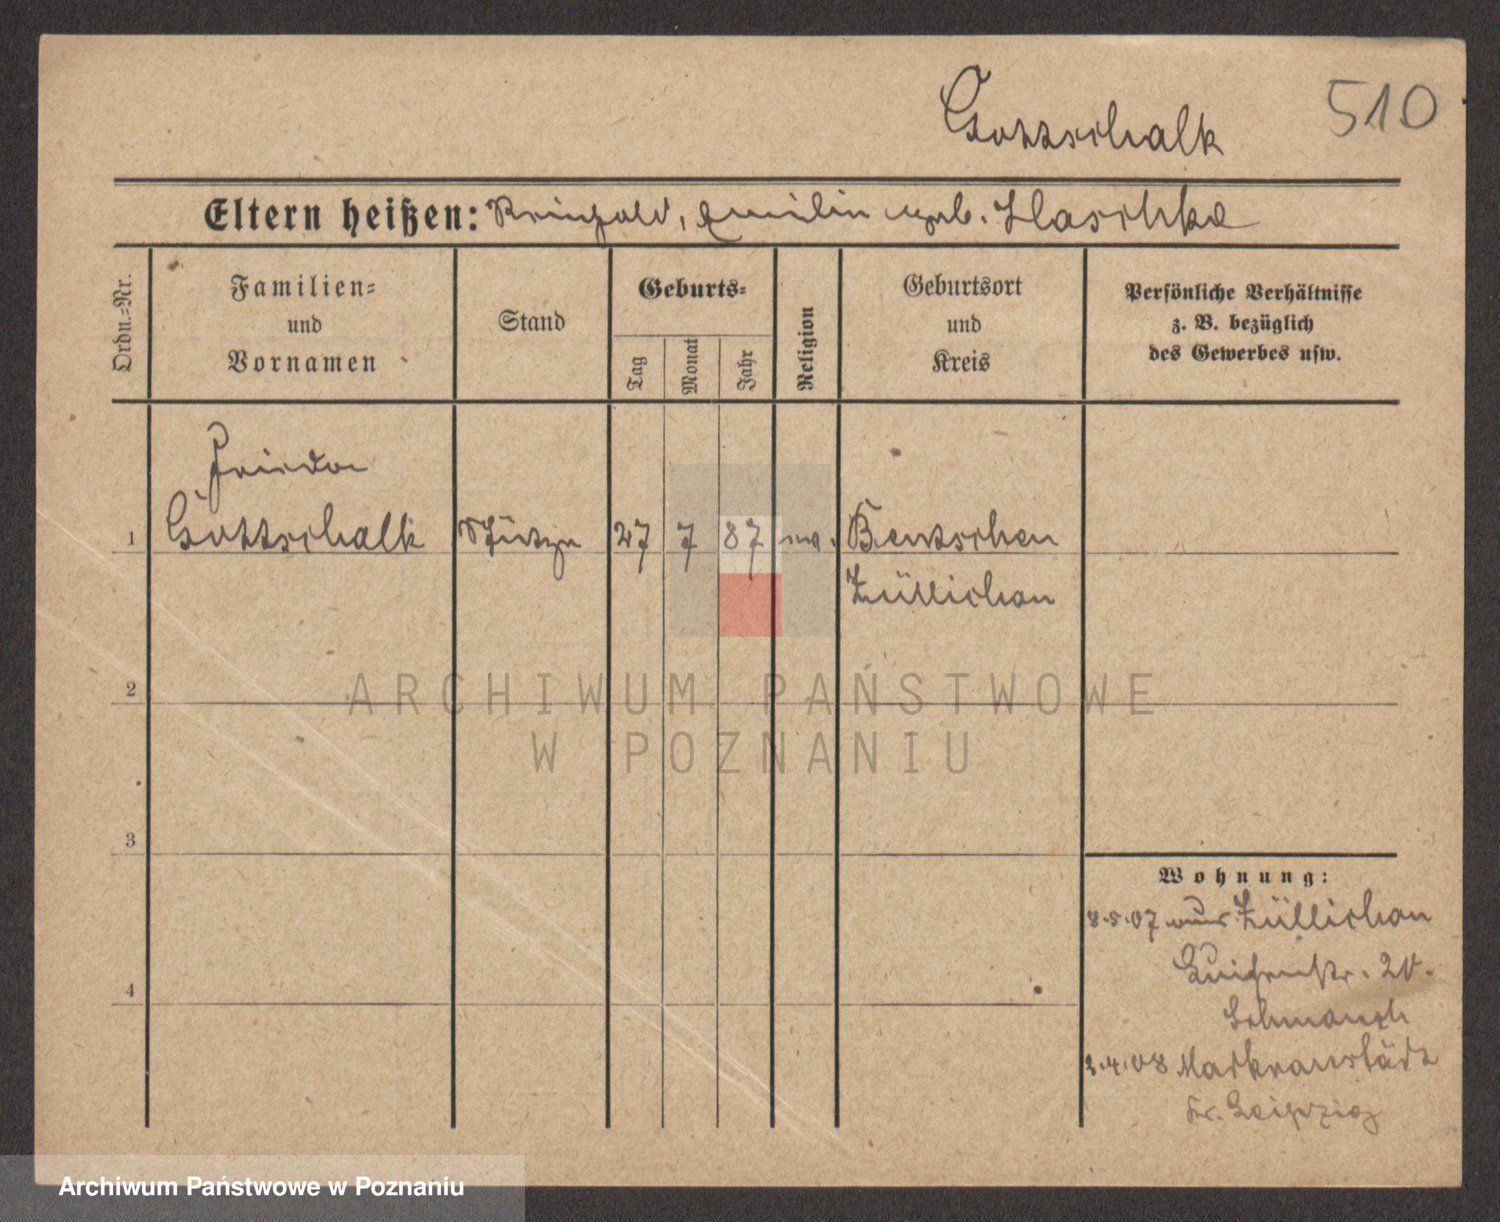 Gottschalk
510
Eltern heißen: Reinhold, Emilie geb. Haschke
Ordn.=Nr.
Familien=
und
Vornamen
Stand
Geburts=
Tag
Monat
Jahr
Religion
Geburtsort
und
Kreis
Persönliche Verhältnisse
z. B. bezüglich
des Gewerbes usw.
Frieda
1 Gottschalk Stütze 27 7 87 ev. Bentschen
Züllichau
2
ARCHIWUM PAŃSTWOWE
W POZNANIU
3
Wohnung:
8.5.07 aus Züllichau
4
2.4.08 Markranstädt
Kr. Leipzig
Archiwum Państwowe w Poznaniu